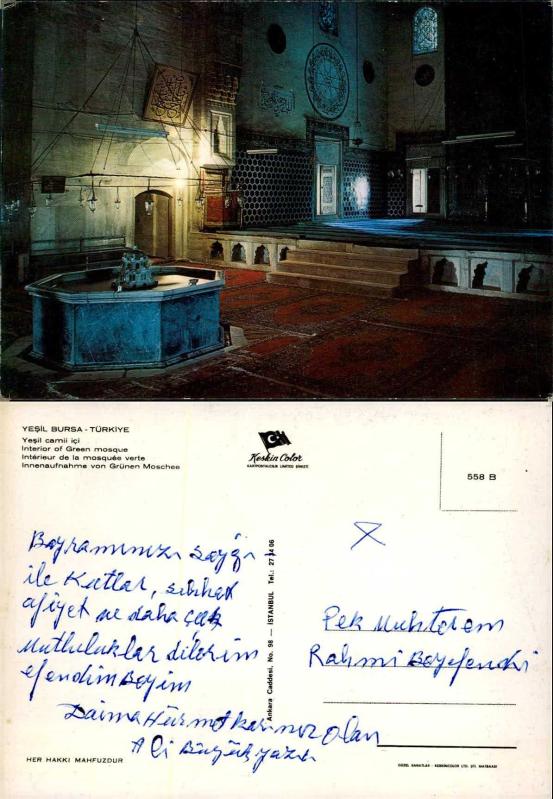 YEŞİL BURSA - TÜRKİYE
Yeşil camii içi
Interior of Green mosque
Intérieur de la mosquée verte
Innenaufnahme von Grünen Moschee
Keskin Color
KARTPOSTALCILIK LİMİTED ŞİRKETİ
558 B
Bayramınızı saygı
ile kutlar, sıhhat
afiyet ve daha çok
mutluluklar dilerim
efendim Beyim
Daima Hürmetkarınız olan
Ali Büyükyazıcı
Ankara Caddesi, No. 98 — İSTANBUL Tel.: 27 14 06
Pek Muhterem
Rahmi Beyefendi
HER HAKKI MAHFUZDUR
GÜZEL SANATLAR - KESKİNCOLOR LTD. ŞTİ. MATBAASI